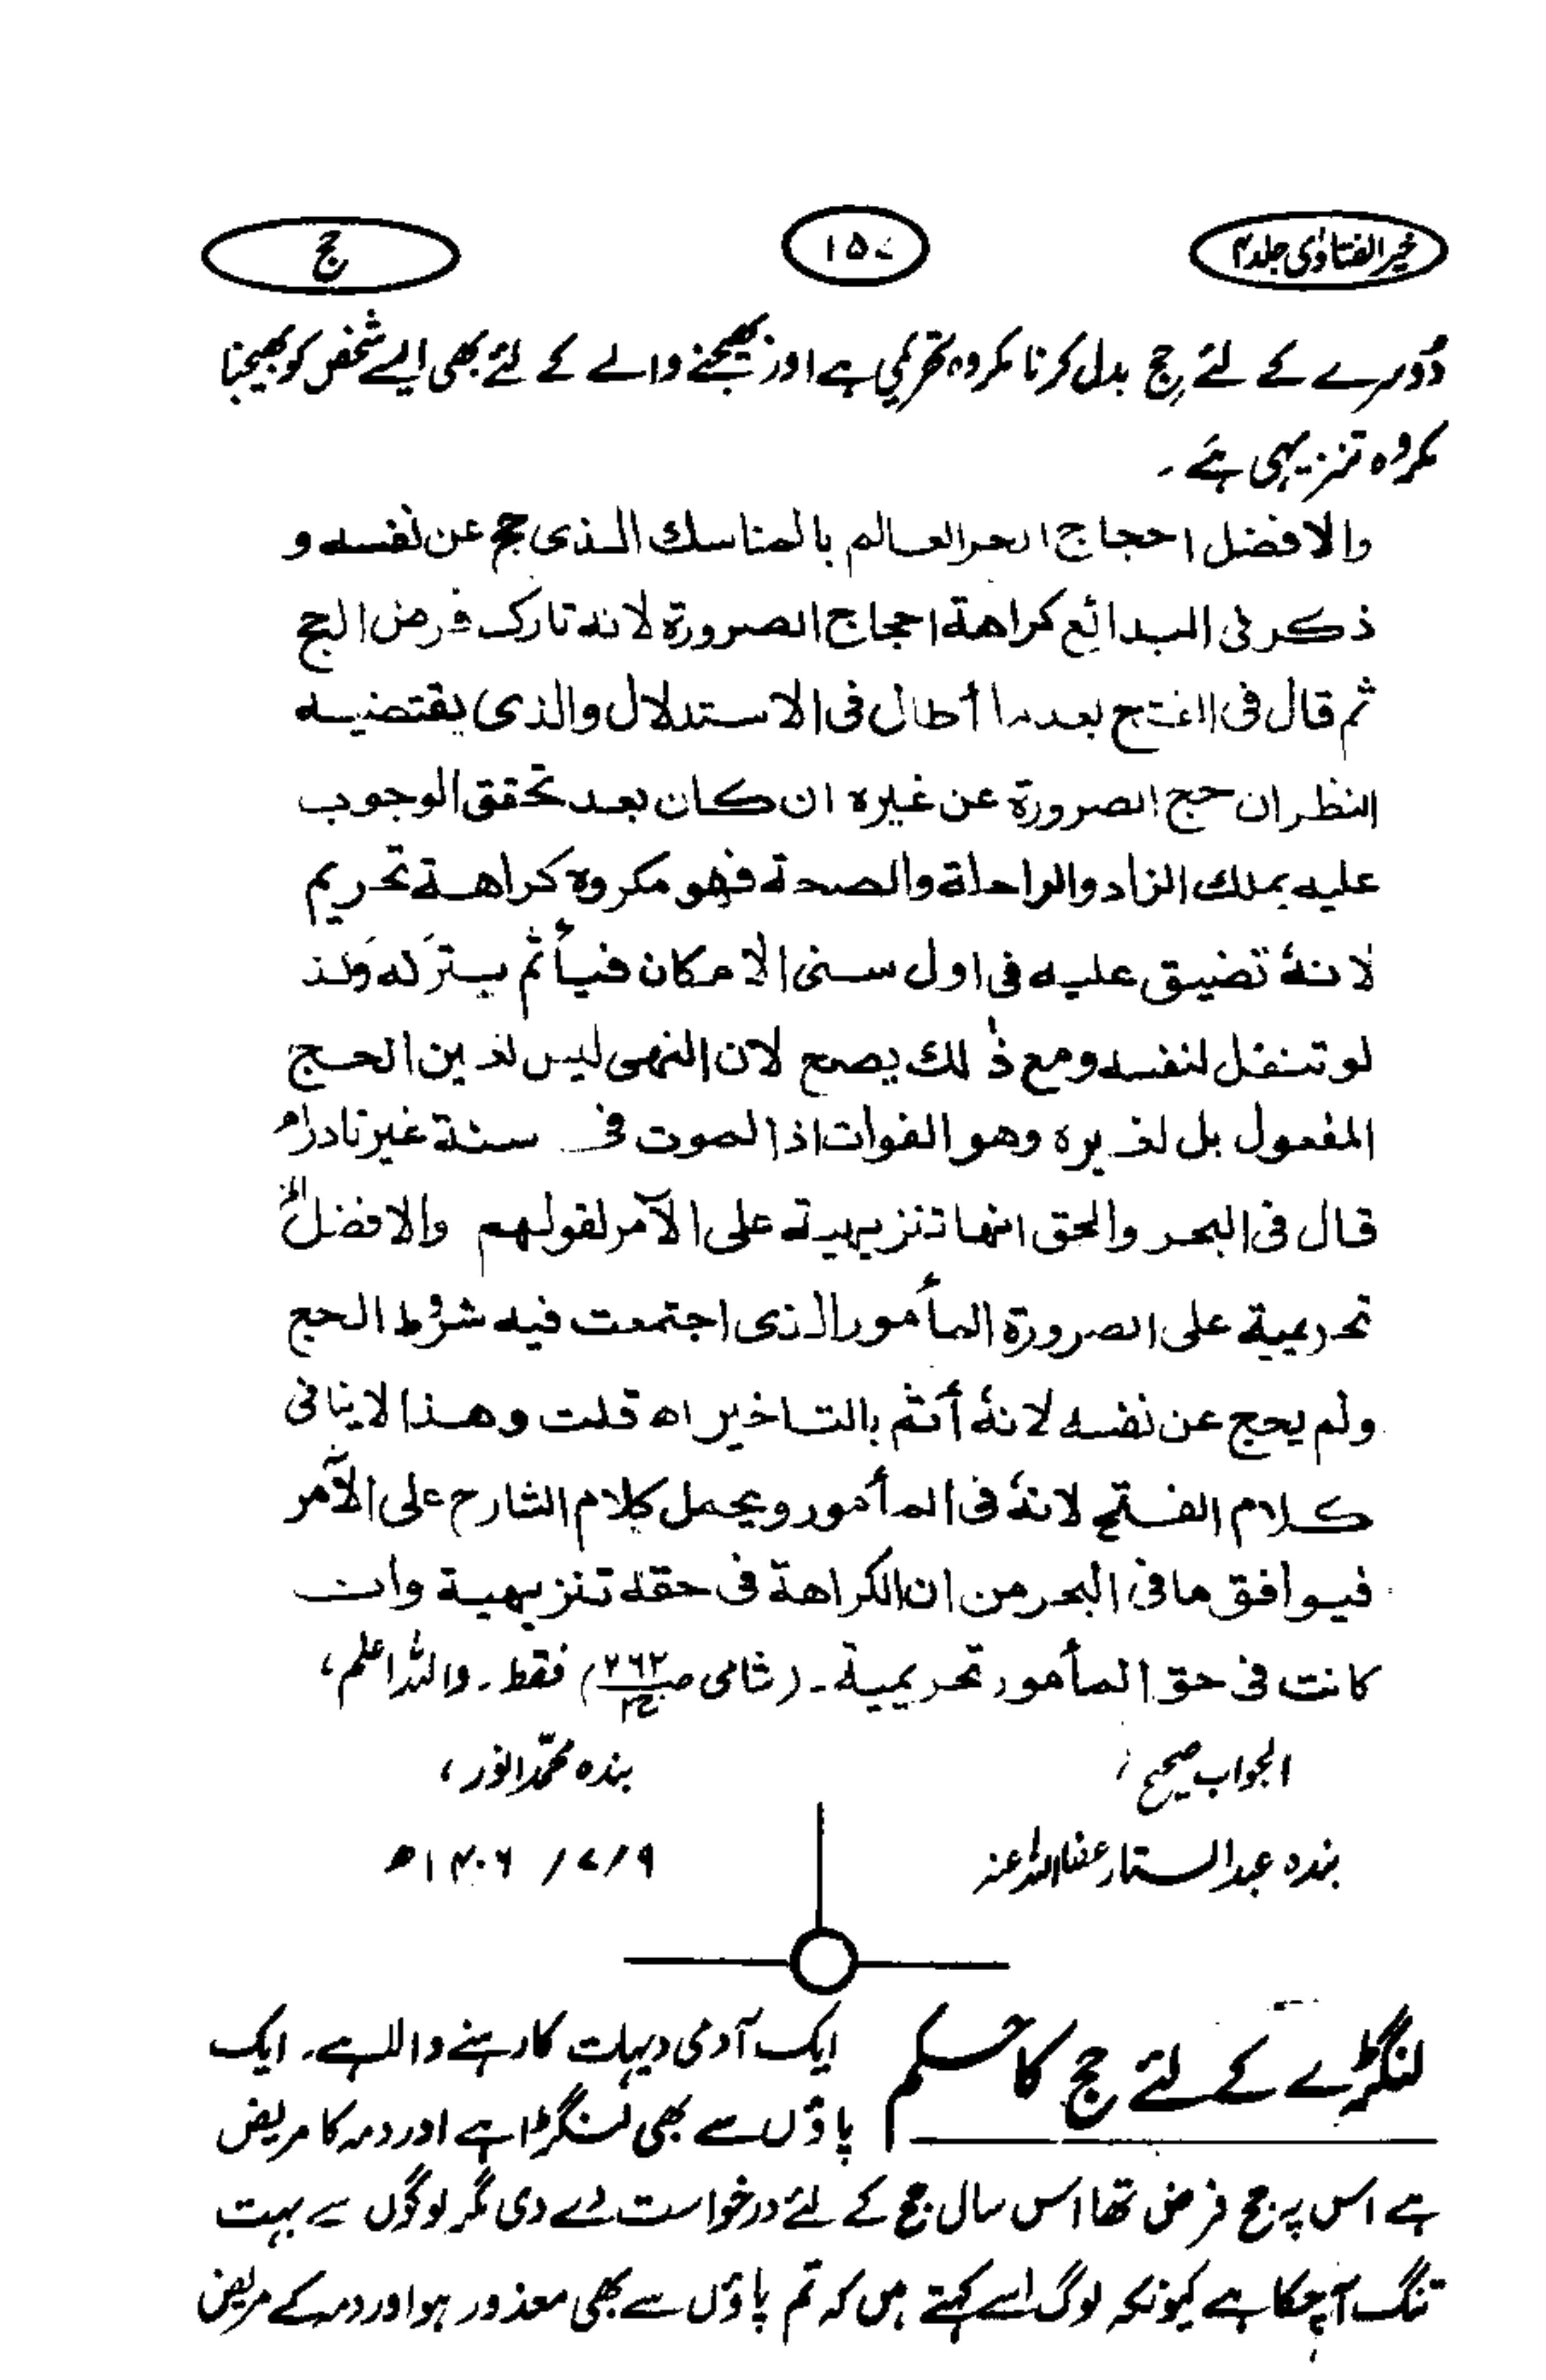 خیر الفتاوٰی جلد ۴
۱۵۷
حج
دُوسرے کے لئے حج بدل کرنا مکروہ تحریمی ہے اور بھیجنے والے کے لئے بھی ایسے شخص کو بھیجنا
مکروہ تنزیہی ہے۔
والافضل احجاج الحر العالم بالمناسك الذی حج عن نفسه و
ذکر فی البدائع کراهة احجاج الصرورة لانه تارک فرض الحج
ثم قال فی الفتح بعد ما أطال فی الاستدلال والذی یقتضیه
النظر ان حج الصرورة عن غیره ان کان بعد تحقق الوجوب
علیه بملك الزاد والراحلة والصحة فهو مکروه کراهة تحریم
لانهٗ تضیق علیه فی اول سنی الامکان فیأثم بترکه وکذا
لو تنفل لنفسه ومع ذٰلك یصح لان النهی لیس لعین الحج
المفعول بل لغیره وهو الفوات اذ الموت فی سنة غیر نادر اھ
قال فی البحر والحق انها تنزیهیة علی الآمر لقولهم والافضل الخ
تحریمیة علی الصرورة المأمور الذی اجتمعت فیه شروط الحج
ولم یحج عن نفسه لانهٗ أثم بالتاخیر اھ قلت وهذا لاینافی
کلام الفتح لانهٗ فی المأمور ویحمل کلام الشارح علی الآمر
فیوافق ما فی البحر من ان الکراهة فی حقه تنزیهیة وان
کانت فی حق المأمور تحریمیة۔ (شامی ص۲۶۲ ج۲) فقط۔ واللہ اعلم،
الجواب صحیح، بندہ محمد انور،
بندہ عبد الستار عفا اللہ عنہ ۹/۷/۱۴۰۶ھ
لنگڑے کے لئے حج کا حکم
ایک آدمی دیہات کا رہنے والا ہے۔ ایک
پاؤں سے بھی لنگڑا ہے اور دمہ کا مریض
ہے اس پہ حج فرض تھا اس سال حج کے لئے درخواست دے دی مگر لوگوں سے بہت
تنگ آ چکا ہے کیونکہ لوگ اسے کہتے ہیں کہ تم پاؤں سے بھی معذور ہو اور دمہ کے مریض